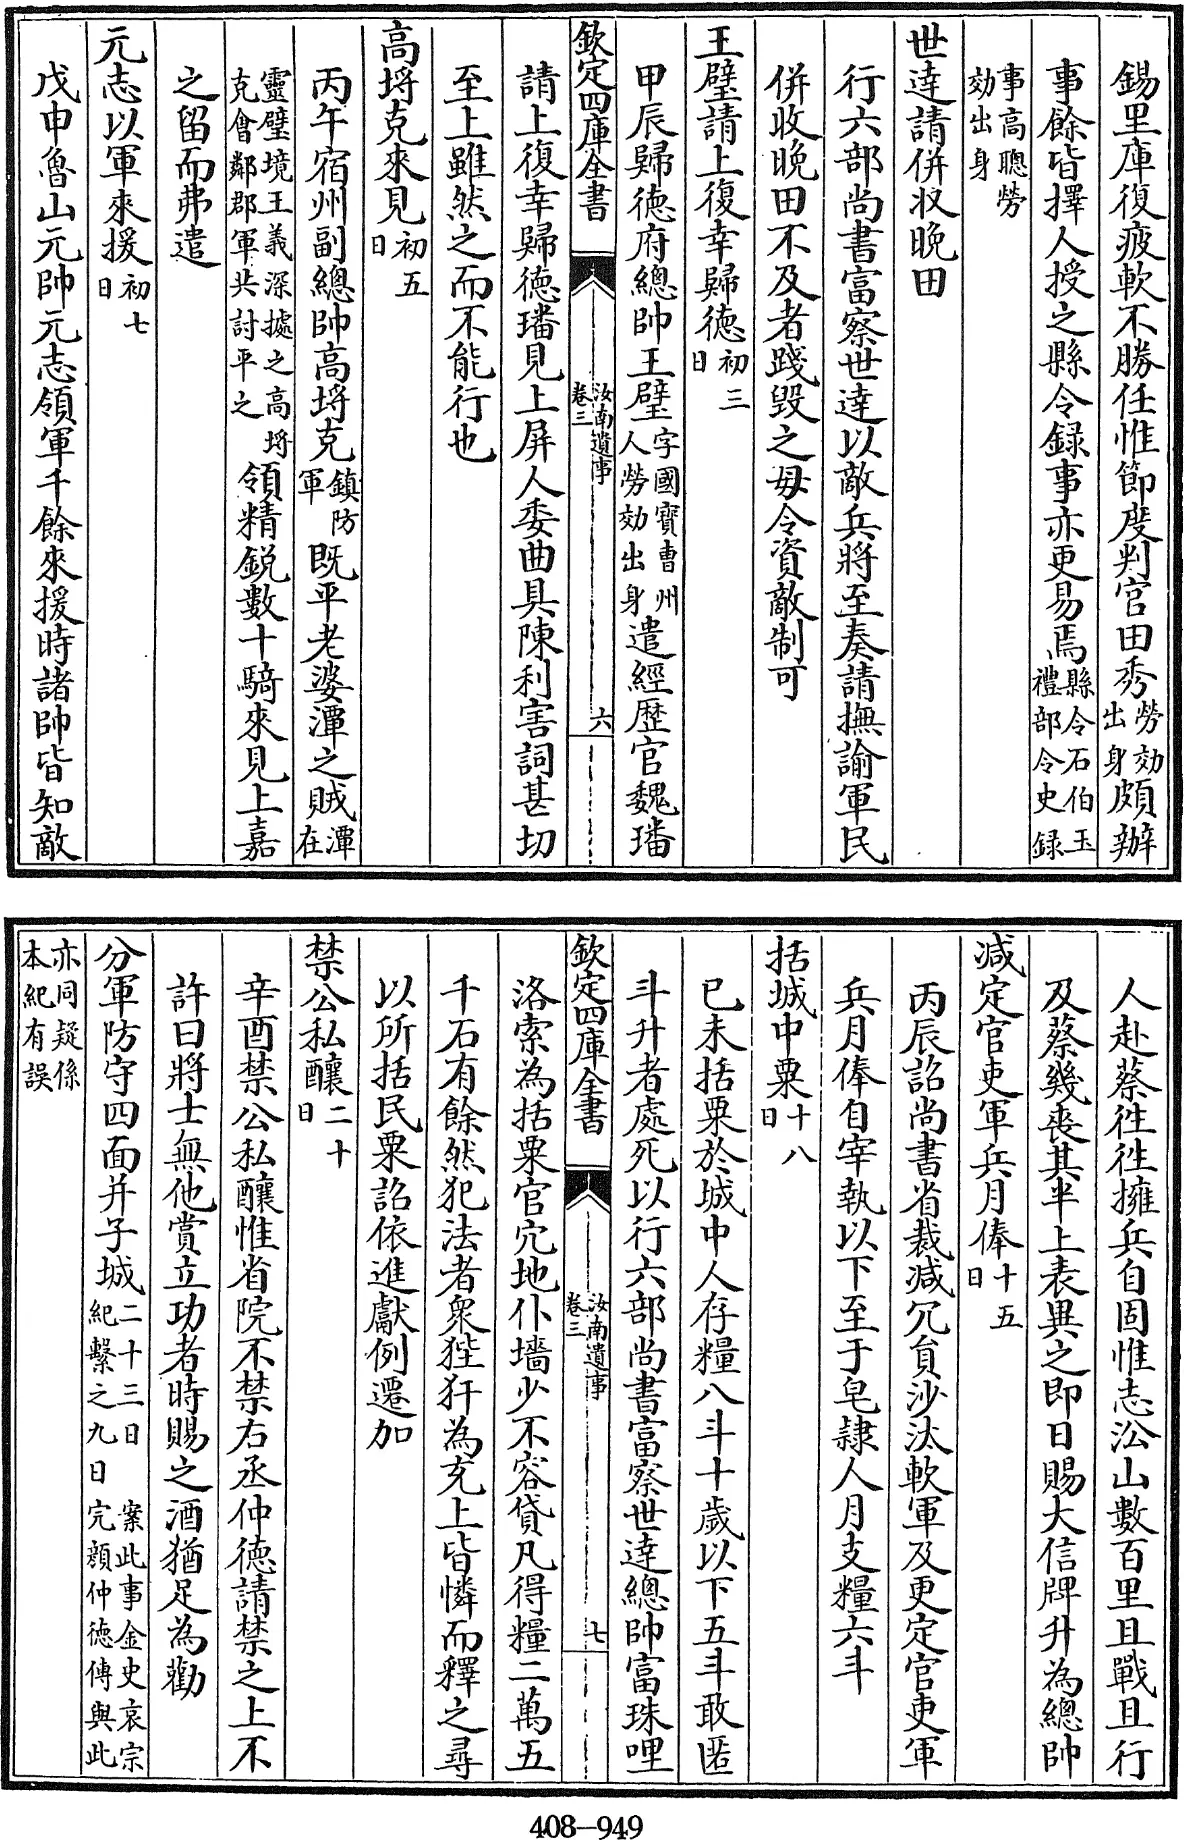 錫里庫復疲軟不勝任惟節度判官田秀勞効出身頗辦
事餘皆擇人授之縣令録事亦更易焉縣令石伯玉禮部令史録
事高聰勞効出身
世逹請併收晚田
行六部尚書富察世逹以敵兵將至奏請撫諭軍民
併收晚田不及者踐毁之毋令資敵制可
王璧請上復幸歸徳初三日
甲辰歸徳府總帥王璧字國寳曹州人勞効出身遣經歴官魏璠
欽定四庫全書
汝南遺事
卷三
六
請上復幸歸徳璠見上屏人委曲具陳利害詞甚切
至上雖然之而不能行也
高埒克來見初五日
丙午宿州副總帥高埒克鎮防軍既平老婆潭之賊潭在
靈璧境王義深據之高埒克會鄰郡軍共討平之領精鋭數十騎來見上嘉
之留而弗遣
元志以軍來援初七日
戊申魯山元帥元志領軍千餘來援時諸帥皆知敵
人赴蔡徃徃擁兵自固惟志㳂山數百里且戰且行
及蔡幾喪其半上表異之即日賜大信牌升為總帥
減定官吏軍兵月俸十五日
丙辰詔尚書省裁減冗貟沙汰軟軍及更定官吏軍
兵月俸自宰執以下至于皂隷人月支糧六斗
括城中粟十八日
己未括粟於城中人存糧八斗十歲以下五斗敢匿
斗升者處死以行六部尚書富察世逹總帥富珠哩
欽定四庫全書
汝南遺事
卷三
七
洛索為括粟官穴地仆墻少不容貸凡得糧二萬五
千石有餘然犯法者衆狴犴為充上皆憐而釋之尋
以所括民粟詔依進獻例遷加
禁公私釀二十日
辛酉禁公私釀惟省院不禁右丞仲徳請禁之上不
許曰將士無他賞立功者時賜之酒猶足為勸
分軍防守四面并子城二十三日 案此事金史哀宗紀繫之九日 完顔仲徳傳與此
亦同疑係本紀有誤
408-949